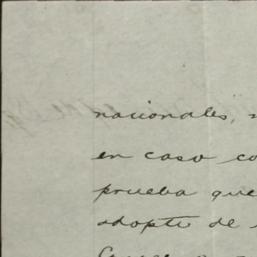 nacionales,
en caso
prueba que
adopte de